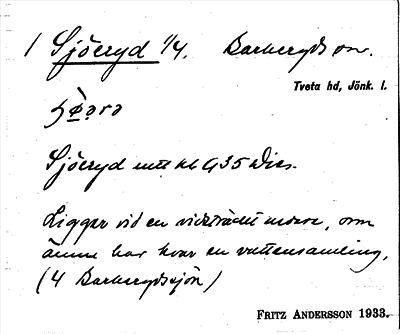 1 Sjöeryd 1/4. Barkeryds sn.
Tveta hd, Jönk. l.
Sjöeryd mtl kb 935 Dics.
Ligger vid en vidsträckt mosse, som
ännu har kvar en vattensamling,
(4 Barkerydssjön)
FRITZ ANDERSSON 1933.